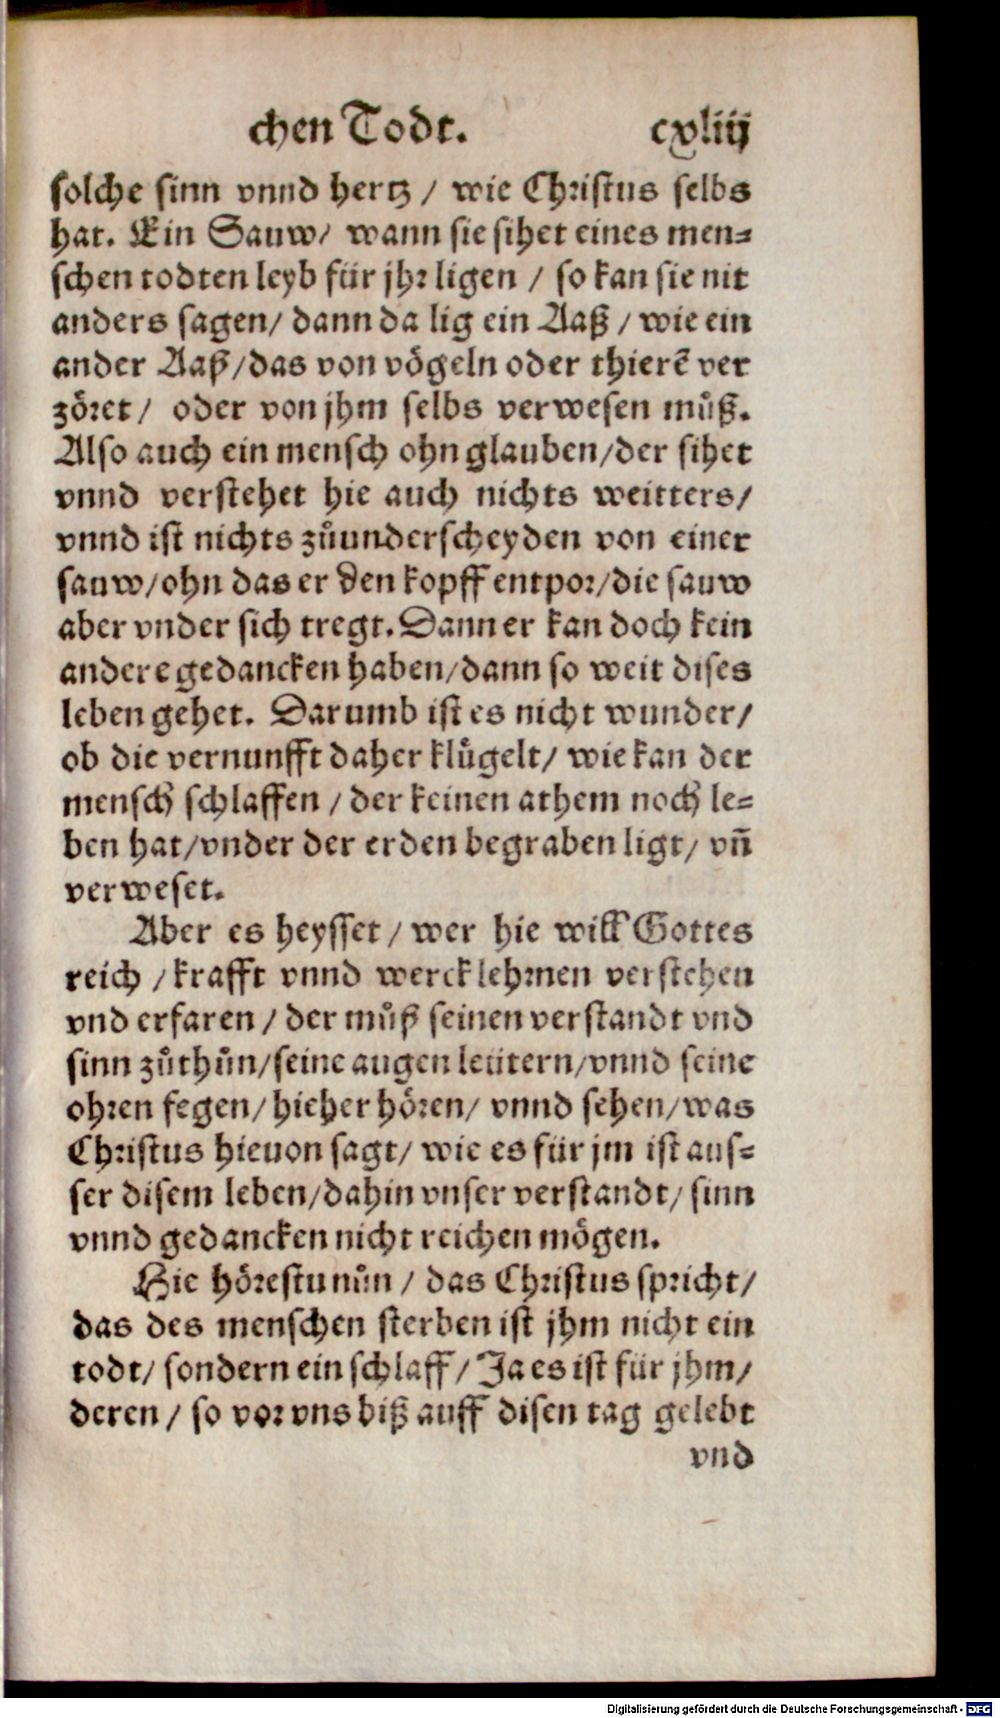 chen Todt. cxliij
solche sinn vnnd hertz / wie Christus selbs
hat. Ein Sauw/ wann sie sihet eines men-
schen todten leyb für jhr ligen / so kan sie nit
anders sagen/ dann da lig ein Aaß / wie ein
ander Aaß/das von vögeln oder thierē ver
zöret/ oder von jhm selbs verwesen můß.
Also auch ein mensch ohn glauben/der sihet
vnnd verstehet hie auch nichts weitters/
vnnd ist nichts zůunderscheyden von einer
sauw/ohn das er den kopff entpor/die sauw
aber vnder sich tregt. Dann er kan doch kein
andere gedancken haben/dann so weit dises
leben gehet. Darumb ist es nicht wunder/
ob die vernunfft daher klůgelt/ wie kan der
mensch schlaffen / der keinen athem noch le-
ben hat/vnder der erden begraben ligt/ vn̄
verweset.
Aber es heysset / wer hie will Gottes
reich / krafft vnnd werck lehrnen verstehen
vnd erfaren / der můß seinen verstandt vnd
sinn zůthůn/seine augen leütern/vnnd seine
ohren fegen/hieher hören/ vnnd sehen/was
Christus hieuon sagt/ wie es für jm ist aus-
ser disem leben/dahin vnser verstandt/ sinn
vnnd gedancken nicht reichen mögen.
Hie hörestu nůn / das Christus spricht/
das des menschen sterben ist jhm nicht ein
todt/ sondern ein schlaff / Ja es ist für jhm/
deren / so vor vns biß auff disen tag gelebt
vnd
Digitalisierung gefördert durch die Deutsche Forschungsgemeinschaft - DFG